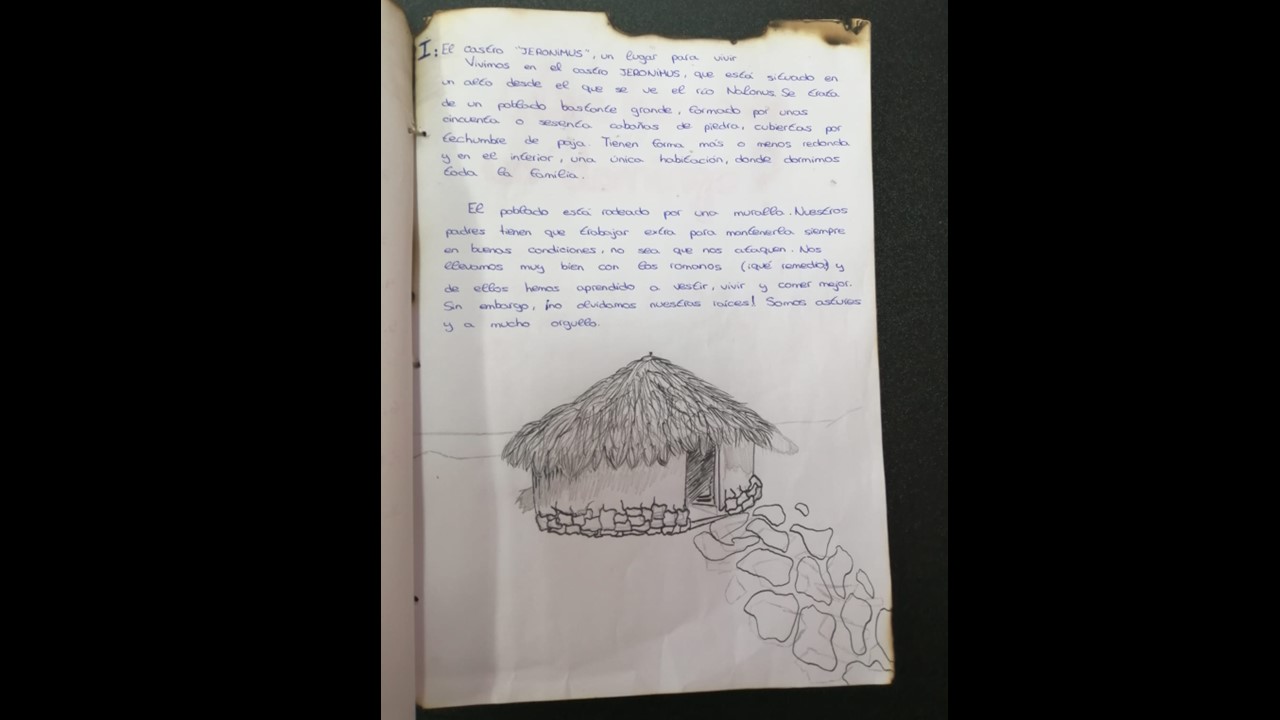 I: El castro "JERONIMUS", un lugar para vivir
Vivimos en el castro JERONIMUS, que está situado en
un alto desde el que se ve el río Nalonus. Se trata
de un poblado bastante grande, formado por unas
cincuenta o sesenta cabañas de piedra, cubiertas por
techumbre de paja. Tienen forma más o menos redonda
y en el interior, una única habitación, donde dormimos
toda la familia.
El poblado está rodeado por una muralla. Nuestros
padres tienen que trabajar extra para mantenerla siempre
en buenas condiciones, no sea que nos ataquen. Nos
llevamos muy bien con los romanos (¡qué remedio!) y
de ellos hemos aprendido a vestir, vivir y comer mejor.
Sin embargo, ¡no olvidamos nuestras raíces! Somos astures
y a mucho orgullo.